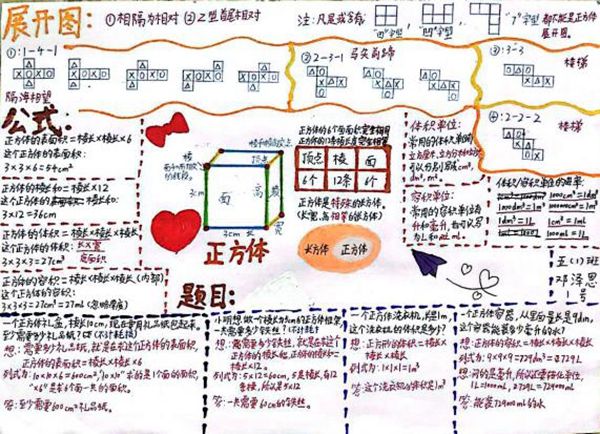 展开图: ①相隔为相对 ②Z型首尾相对
注:凡是或含有 "田"字型 "凹"字型 "7"字型 都不能是正方体展开图。
①:1-4-1
②2-3-1
③:3-3
楼梯
隔海相望
④:2-2-2
楼梯
公式:
正方体的表面积=棱长×棱长×6
这个正方体的表面积:
3×3×6=54cm²
正方体的棱长和=棱长×12
3×12=36cm
正方体的体积=棱长×棱长×棱长
这个正方体的体积:长×宽
3×3×3=27cm³
正方体的容积=棱长×棱长×棱长(内部)
这个正方体的容积:
3×3×3=27cm³=27ml(忽略厚度)
棱
顶点
面
高
宽
3cm
3cm 长
正方体
正方体的6个面面积完全相同
正方体的12条棱长度完全相等
顶点 棱 面
8个 12条 6个
正方体是特殊的长方体。
(长、宽、高相等的长方体)
长方体 正方体
体积单位:
常用的体积单位有
可以分别写成cm³,
dm³,m³
容积单位:
常用的容积单位有
升和毫升,也可以写
为L和mL
体积/容积单位的进率:
1000dm³=1m³
1dm³=1L
1cm³=1mL
1L=1000mL
五(1)班
邓泽恩
1号
题目:
一个正方体礼盒,棱长10cm,现在要用礼品纸包起来,
至少需要多少礼品纸?(不计耗损)
想:需要多少礼品纸,就是在求这个正方体的表面积,
正方体的表面积=棱长×棱长×6
列式为:10×10×6=600cm²,"10×10"求的是1个面的面积,
"×6"是求6个面一共的面积。
答:至少需要600cm²礼品纸。
小明想做一个棱长为5cm的正方体框架,
一共需要多少铁丝?(不计耗损)
棱长×12。
列式为:5×12=60cm,5是棱长,有12
条棱,所以是5×12
答:一共需要60cm的铁丝。
一个正方体洗衣机,长1m,
这个洗衣机的体积是多少?
想:正方形的体积=棱长×
棱长×棱长
列式为:1×1×1=1m³
答:这个洗衣机的体积是1m³
一个正方体容器,从里面量长是9dm,
这个容器能装多少毫升的水?
想:正方体的容积=棱长×棱长×
棱长
列式为:9×9×9=729dm³=0.729L
1L=1000mL,729L=729000mL
答:能装729000mL的水